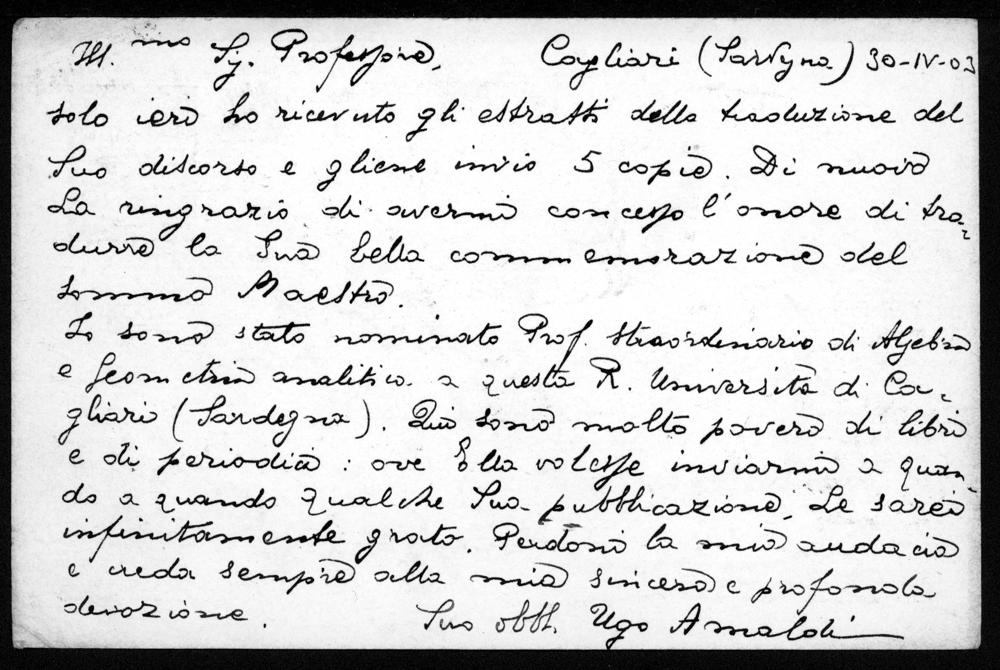 Ill.mo Sig. Professore, Cagliari (Sardegna) 30-IV-03
solo ieri ho ricevuto gli estratti della traduzione del
Suo discorso e gliene invio 5 copie. Di nuovo
La ringrazio di avermi concesso l'onore di tra-
durre la Sua bella commemorazione del
sommo Maestro.
Io sono stato nominato Prof. straordinario di Algebra
e Geometria analitica a questa R. Università di Ca-
gliari (Sardegna). Qui sono molto poveri di libri
e di periodici: ove Ella volesse inviarmi a quan-
do a quando qualche Sua pubblicazione, Le sarei
infinitamente grato. Perdoni la mia audacia
e creda sempre alla mia sincera e profonda
devozione. Suo obbl. Ugo Amaldi